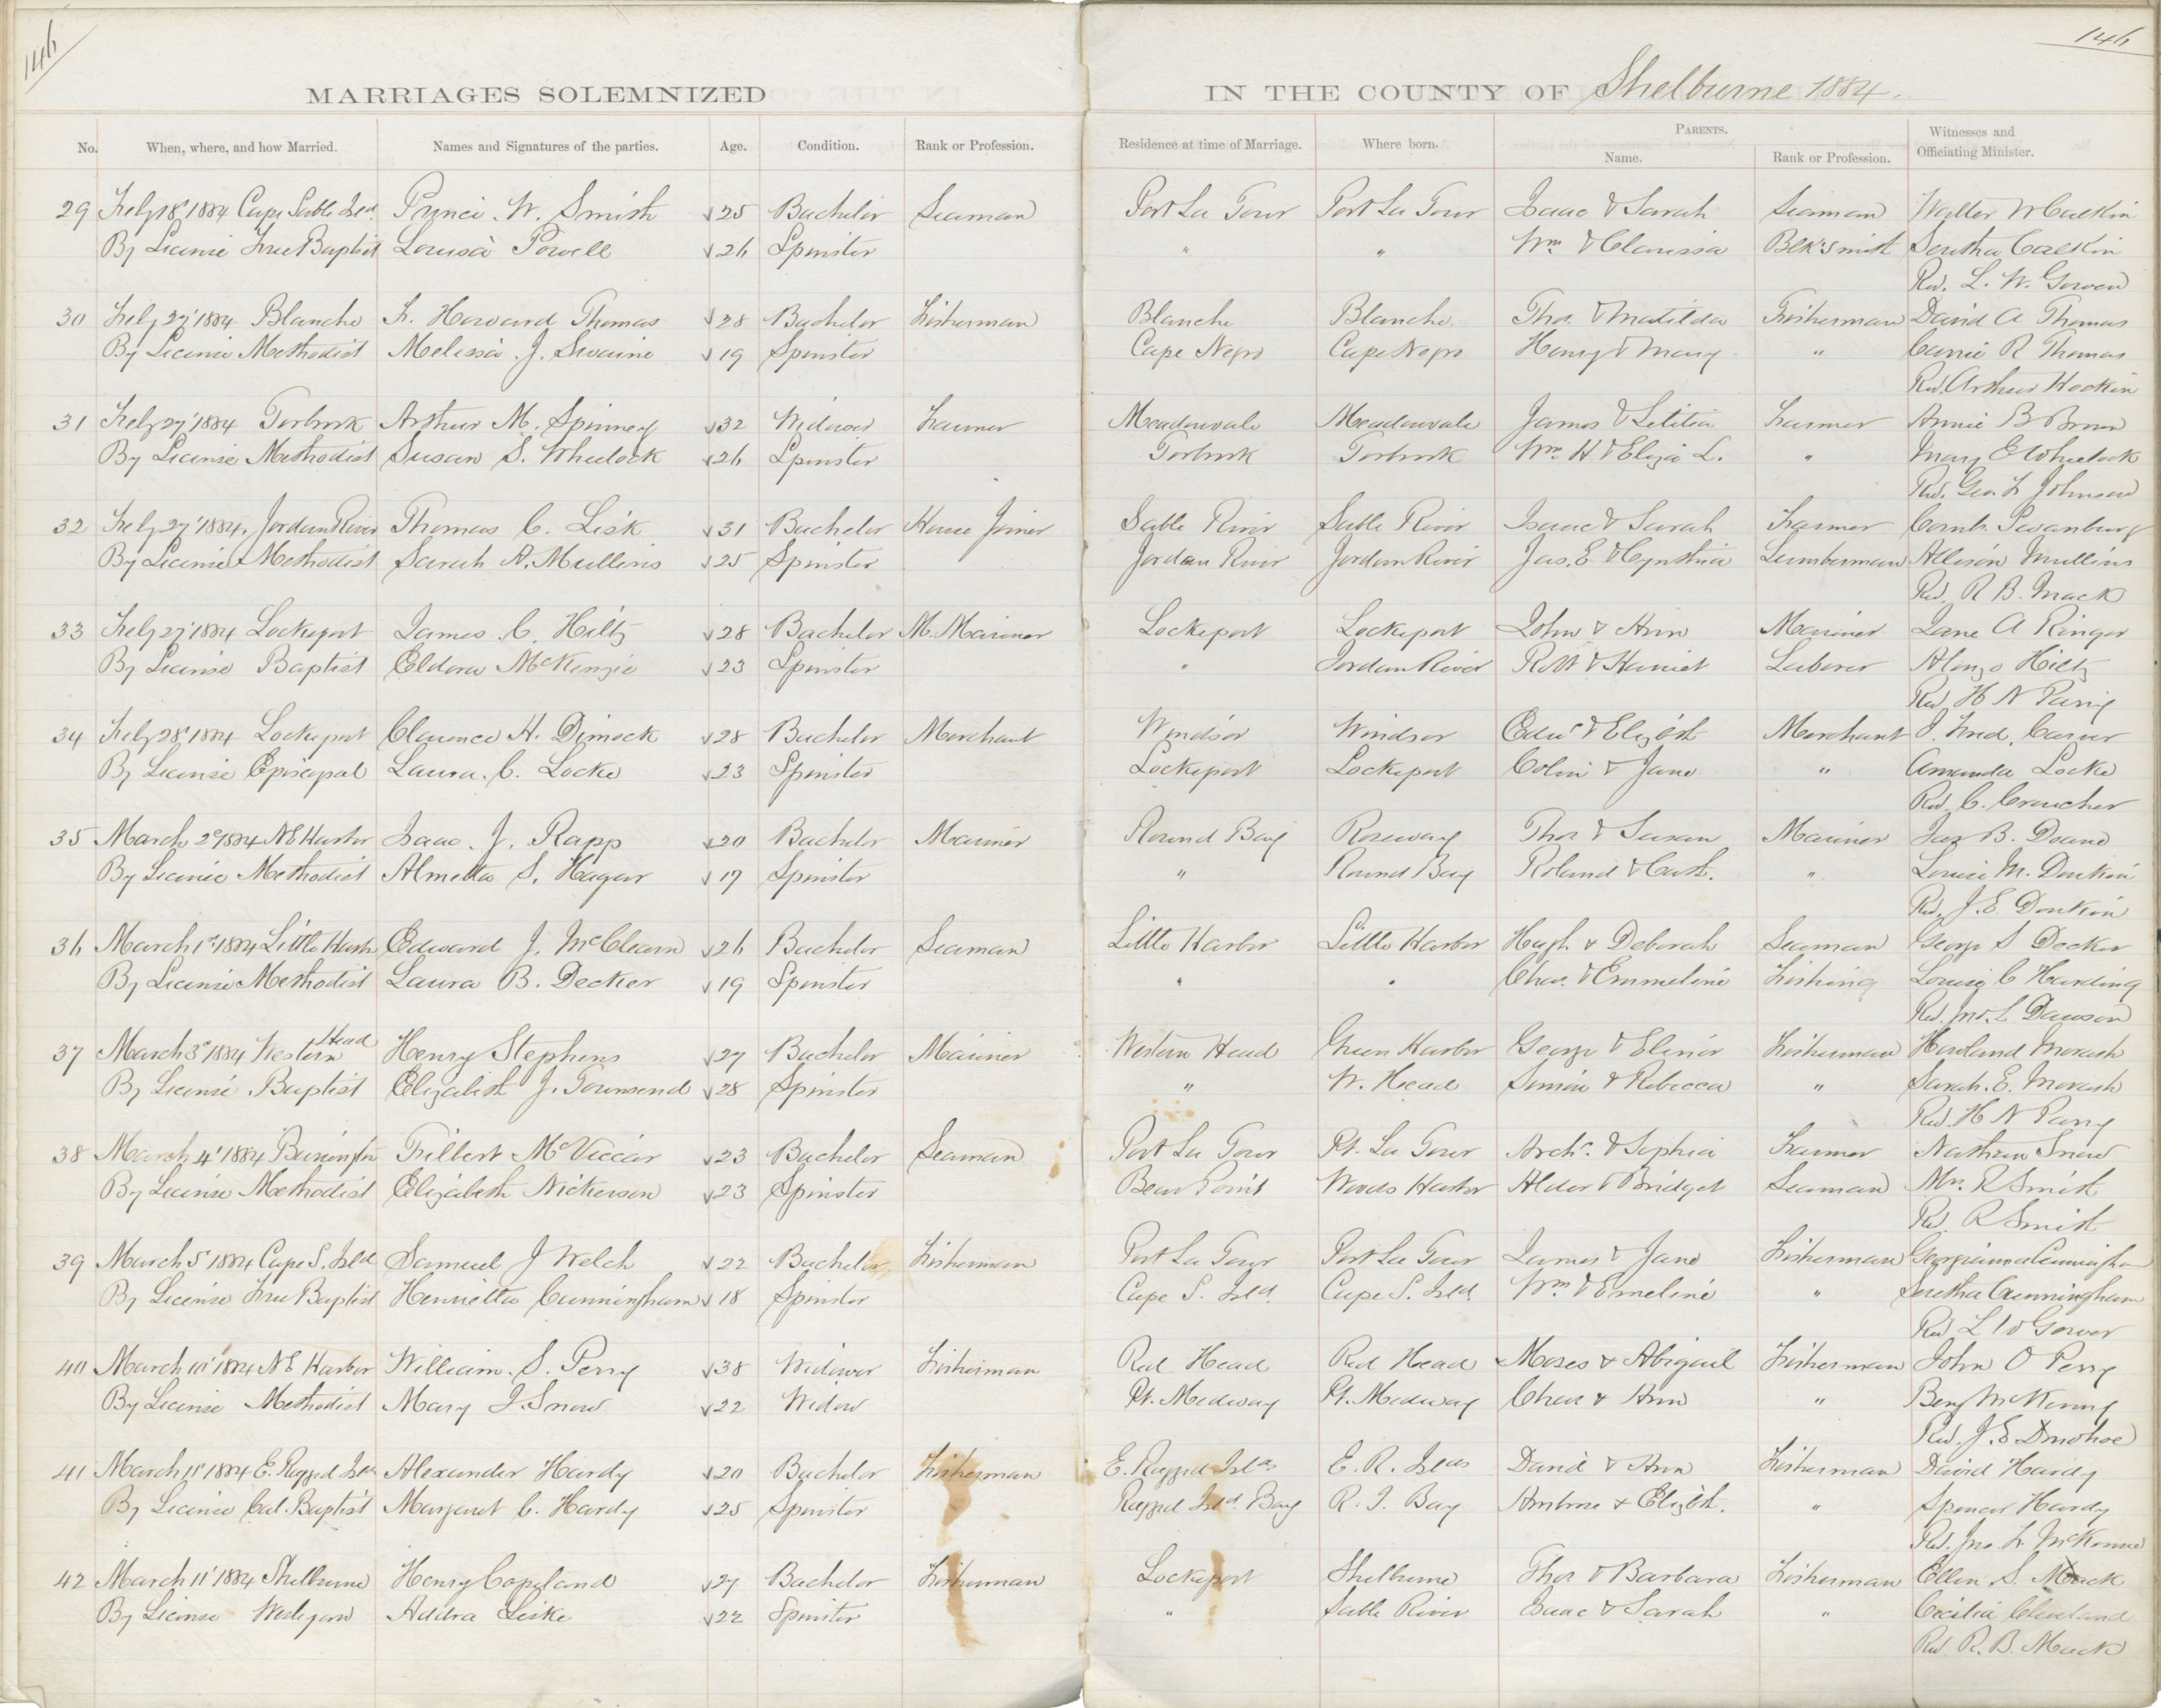 146
146
MARRIAGES SOLEMNIZED IN THE COUNTY OF Shelburne 1884.
No. When, where, and how Married. Names and Signatures of the parties. Age. Condition. Rank or Profession. Residence at time of Marriage. Where born. PARENTS. Name. Rank or Profession. Witnesses and Officiating Minister.
29 Feby 18' 1884 Cape Sable Isld. Prince W. Smith √25 Bachelor Seaman Port La Tour Port La Tour Isaac & Sarah Seaman Walter Calkin
By License Free Baptist Louisa Powell √26 Spinster " " Wm & Clarissa Blk'smith Seretha Calkin
Rev. L. W. Gowen
30 Feby 27' 1884 Blanche F. Howard Thomas √28 Bachelor Fisherman Blanche Blanche Thos. & Matilda Fisherman David A Thomas
By License Methodist Melissa J. Swaine √19 Spinster Cape Negro Cape Negro Henry & Mary " Carrie R Thomas
Rev. Arthur Hockin
31 Feby 27' 1884 Torbrook Arthur M. Spinney √32 Widower Farmer Meadowvale Meadowvale James & Letitia Farmer Annie B Brown
By License Methodist Susan S. Wheelock √26 Spinster Torbrook Torbrook Wm H & Eliza L. " Mary E Wheelock
Rev. Geo. F Johnson
32 Feby 27' 1884. Jordan River Thomas C. Lisk √31 Bachelor House Joiner Sable River Sable River Isaac & Sarah Farmer Comb. Swanburg
By License Methodist Sarah A. Mullins √25 Spinster Jordan River Jordan River Jas. E & Cynthia Lumberman Allison Mullins
Rev. R B. Mack
33 Feby 27' 1884 Lockeport James C. Hiltz √28 Bachelor M. Mariner Lockeport Lockeport John & Ann Mariner Jane A Ringer
By License Baptist Eldora McKenzie √23 Spinster " Jordan River Robt & Harriet Laborer Alonzo Hiltz
Rev. H N Parry
34 Feby 28' 1884 Lockeport Clarence H. Dimock √28 Bachelor Merchant Windsor Windsor Edwd & Elizbth Merchant J. Fred. Carver
By License Episcopal Laura. C. Locke √23 Spinster Lockeport Lockeport Colin & Jane " Amanda Locke
Rev. C. Croucher
35 March 2d 1884 N E Harbor Isaac J. Rapp √20 Bachelor Mariner Round Bay Roseway Thos & Susan Mariner Jas B. Doane
By License Methodist Almetta S. Hagar √17 Spinster " Round Bay Roland & Cath. " Louise M. Donkin
Rev. J. E. Donkin
36 March 1st 1884 Little Harbr Edward J. McClearn √26 Bachelor Seaman Little Harbor Little Harbor Hugh & Deborah Seaman George S Decker
By License Methodist Laura B. Decker √19 Spinster " " Chas. & Emmeline Fishing C Harding
Rev. Jno. L Dawson
37 March 3d 1884 Western Head Henry Stephens √27 Bachelor Mariner Western Head Green Harbor George & Elinor Fisherman Howland Morash
By License Baptist Elizabeth J. Townsend √28 Spinster " W. Head Simeon & Rebecca " Sarah. E. Morash
Rev. H N Parry
38 March 4' 1884 Barrington Filbert McViccar √23 Bachelor Seaman Port La Tour Pt. La Tour Archd. & Sophia Farmer Nathan Snow
By License Methodist Elizabeth Nickerson √23 Spinster Bear Point Woods Harbor Alder & Bridget Seaman Mrs. R Smith
Rev. R Smith
39 March 5' 1884 Cape S. Isld Samuel J Welch √22 Bachelor Fisherman Port La Tour Port La Tour James & Jane Fisherman Georgianna Cunningham
By License Free Baptist Henrietta Cunningham √18 Spinster Cape S. Isld. Cape S. Isld. Wm & Emeline " Seretha Cunningham
Rev L W Gowen
40 March 10' 1884 N E Harbor William. S. Perry √38 Widower Fisherman Red Head Red Head Moses & Abigail Fisherman John O Perry
By License Methodist Mary J. Snow √22 Widow Pt. Medway Pt. Medway Chas & Ann " Benj McKenny
Rev. J. E
41 March 11' 1884 E. Ragged Islds Alexander Hardy √20 Bachelor Fisherman E. Ragged Islds E. R. Islds David & Ann Fisherman David Hardy
By License Cal. Baptist Margaret C. Hardy √25 Spinster Ragged Isld. Bay R. I. Bay Ambrose & Elizbth. " Spencer Hardy
Rev. Jno.
42 March 11' 1884 Shelburne Henry Copeland √27 Bachelor Fisherman Lockeport Shelburne Thos & Barbara Fisherman Ellen S. Mack
By License Wesleyan Addra Liske √22 Spinster " Sable River Isaac & Sarah " Cecilia Cleveland
Rev R. B. Mack